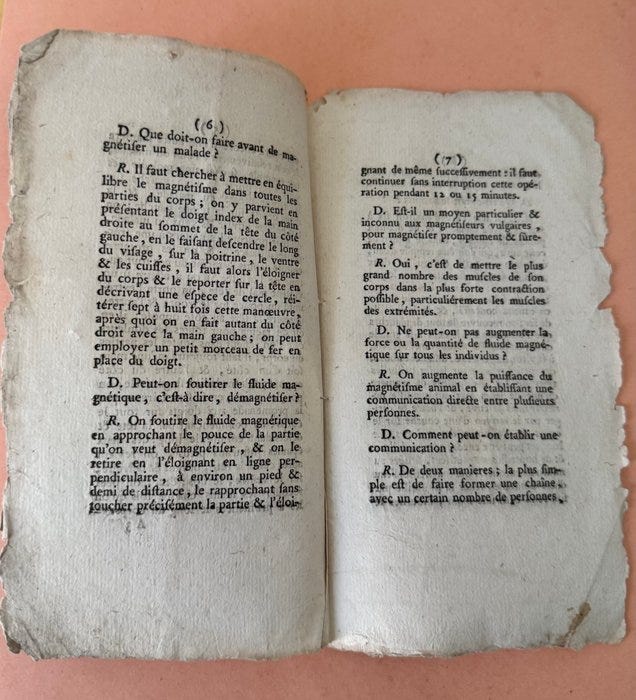 ( 6 )
D. Que doit-on faire avant de ma-
gnétiſer un malade ?
R. Il faut chercher à mettre en équi-
libre le magnétiſme dans toutes les
parties du corps ; on y parvient en
préſentant le doigt index de la main
droite au ſommet de la tête du côté
gauche, en le faiſant deſcendre le long
du viſage, ſur la poitrine, le ventre
& les cuiſſes, il faut alors l'éloigner
du corps & le reporter ſur la tête en
décrivant une eſpece de cercle, réi-
térer ſept à huit fois cette manœuvre,
après quoi on en fait autant du côté
droit avec la main gauche ; on peut
employer un petit morceau de fer en
place du doigt.
D. Peut-on ſoutirer le fluide ma-
gnétique, c'eſt-à dire, démagnétiſer ?
R. On ſoutire le fluide magnétique
en approchant le pouce de la partie
qu'on veut démagnétiſer, & on le
retire en l'éloignant en ligne per-
pendiculaire, à environ un pied &
demi de diſtance, le rapprochant ſans
toucher préciſément la partie & l'éloi-
( 7 )
gnant de même ſucceſſivement : il faut
continuer ſans interruption cette opé-
ration pendant 12 ou 15 minutes.
D. Eſt-il un moyen particulier &
inconnu aux magnétiſeurs vulgaires,
pour magnétiſer promptement & ſûre-
ment ?
R. Oui, c'eſt de mettre le plus
grand nombre des muſcles de ſon
corps dans la plus forte contraction
poſſible, particuliérement les muſcles
des extrémités.
D. Ne peut-on pas augmenter la
force ou la quantité de fluide magné-
tique ſur tous les individus ?
R. On augmente la puiſſance du
magnétiſme animal en établiſſant une
communication directe entre pluſieurs
perſonnes.
D. Comment peut-on établir une
communication ?
R. De deux manieres ; la plus ſim-
ple eſt de faire former une chaîne,
avec un certain nombre de perſonnes,